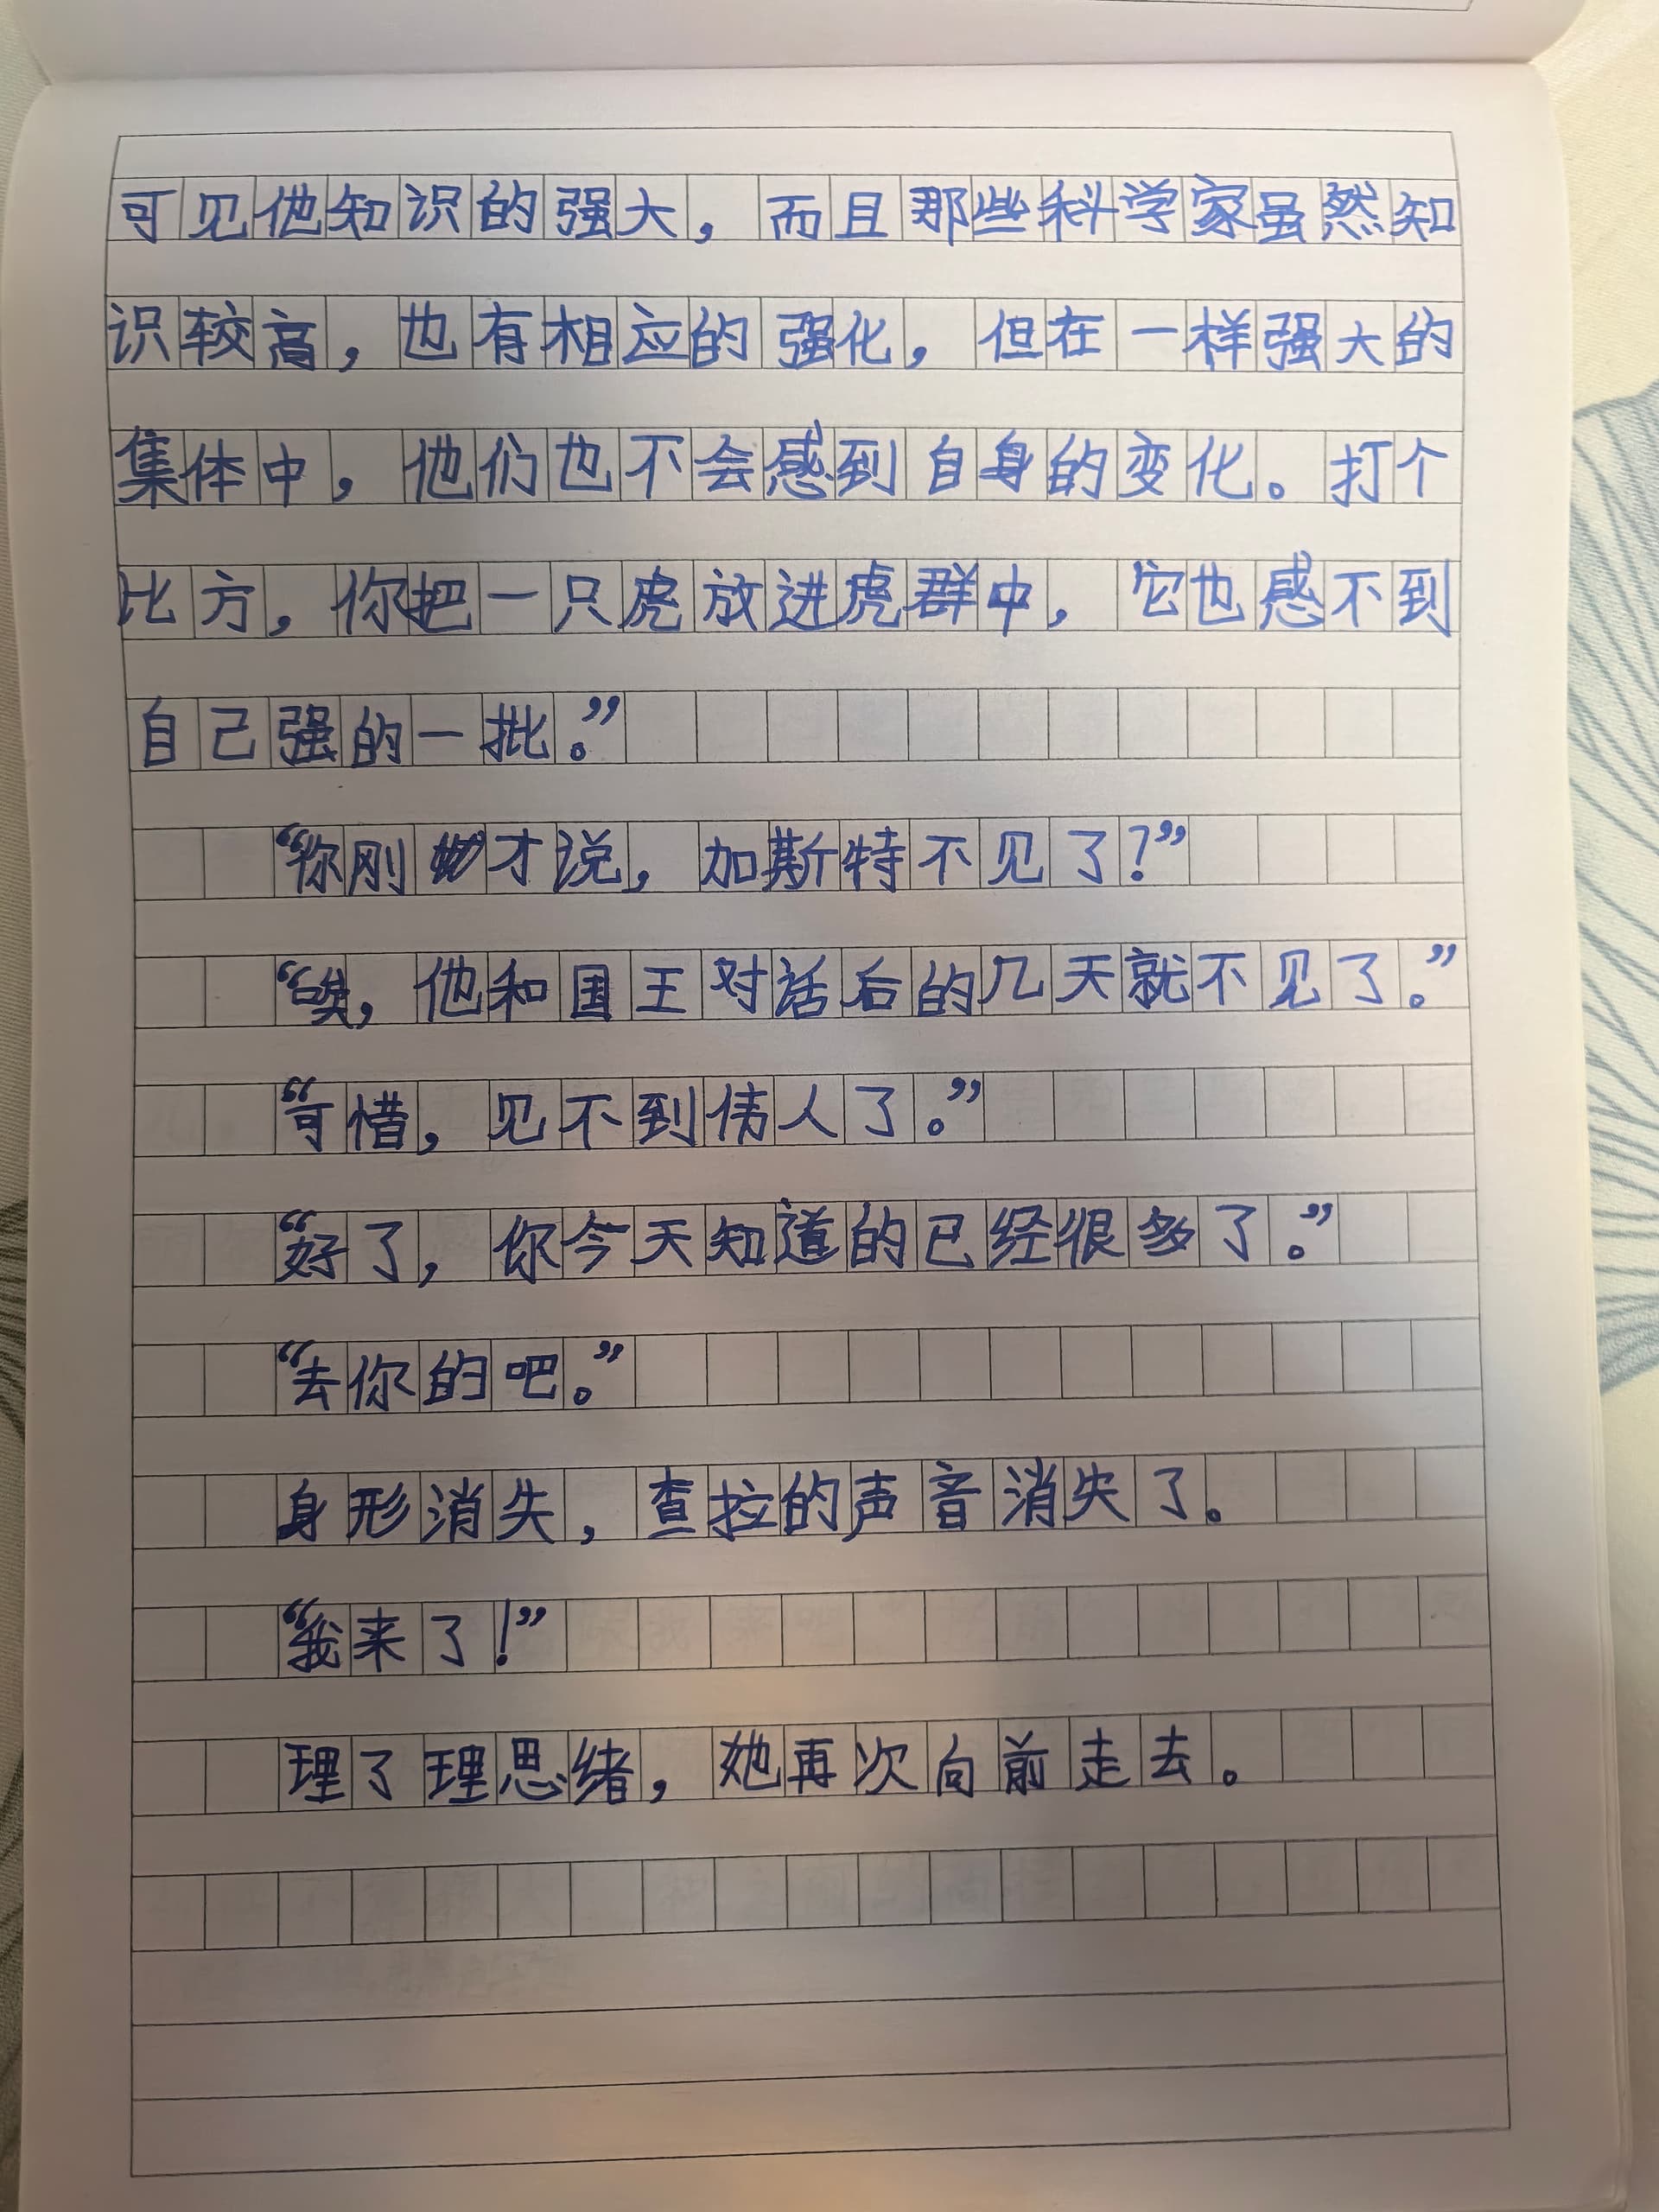 可见他知识的强大，而且那些科学家虽然知
识较高，也有相应的强化，但在一样强大的
集体中，他们也不会感到自身的变化。打个
比方，你把一只虎放进虎群中，它也感不到
自己强的一批。”
“你刚才说，加斯特不见了？”
“诶，他和国王对话后的几天就不见了。”
“可惜，见不到伟人了。”
“好了，你今天知道的已经很多了。”
“去你的吧。”
身形消失，查拉的声音消失了。
“我来了！”
理了理思绪，她再次向前走去。